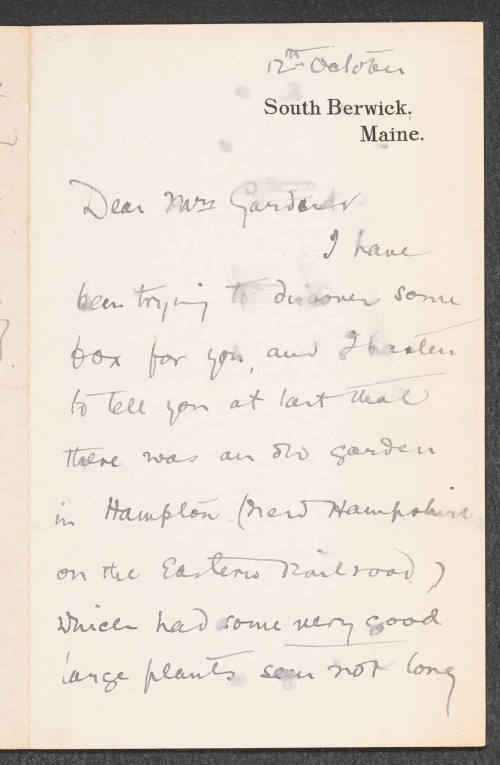 12th October
South Berwick.
Maine.
Dear Mrs Gardner
I have
been trying to discover some
box for you, and I hasten
to tell you at last that
there was an old garden
in Hampton (New Hampshire
on the Eastern Railroad)
which had some very good
large plants seen not long